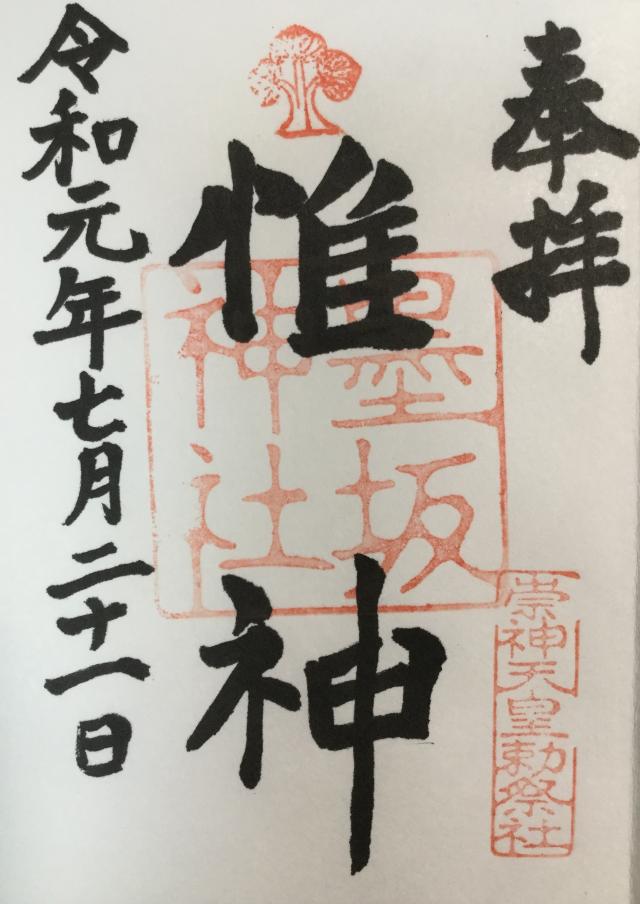 奉拝
崇神天皇勅祭社
惟神
墨坂
神社
令和元年七月二十一日